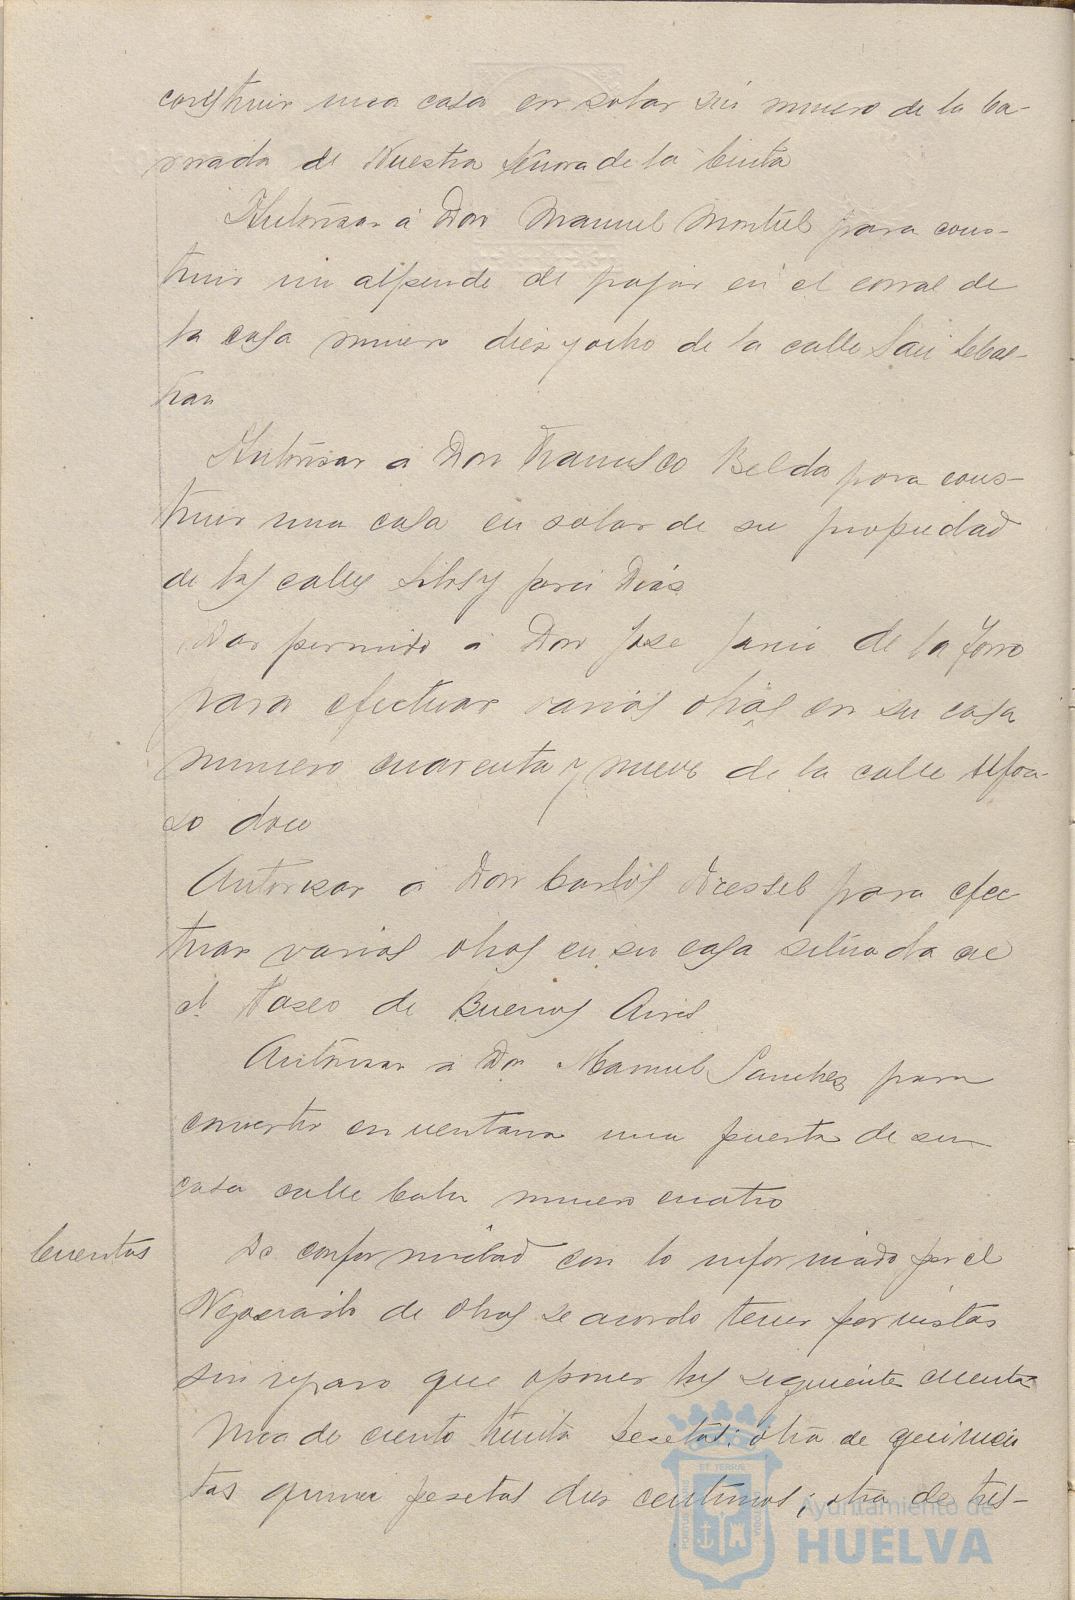 construir una casa en solar sin numero de la ba-
rriada de Nuestra Señora de la Cinta
Autorizar á Don Manuel Montiel para cons-
truir un alpende de pajar en el corral de
la casa numero diez y ocho de la calle San Sebas-
tian
Autorizar á Don Francisco Belda para cons-
truir una casa en solar de su propiedad
de las calles Silos y
Dar permiso á Don Jose Garcia de la Torre
para efectuar varias obras en su casa
numero cuarenta y nueve de la calle Alfon-
so doce
Autorizar á Don Carlos Dressel para efec
tuar varias obras en su casa situada en
el Paseo de Buenos Aires
Autorizar á Dn Manuel Sanchez para
convertir en ventana una puerta de su
casa calle numero cuatro
Cuentas
De conformidad con lo informado por el
Negociado de Obras se acordo tener por vistas
sin reparo que oponer las siguiente cuenta
Una de ciento treinta pesetas; otra de quinien
tas quince pesetas diez centimos; otra de tres-
Ayuntamiento de
HUELVA